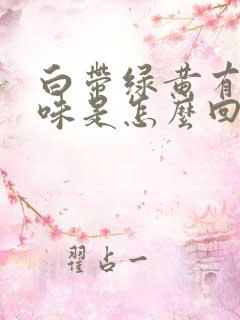 白带绿黄有
味是怎麽回
翟占一